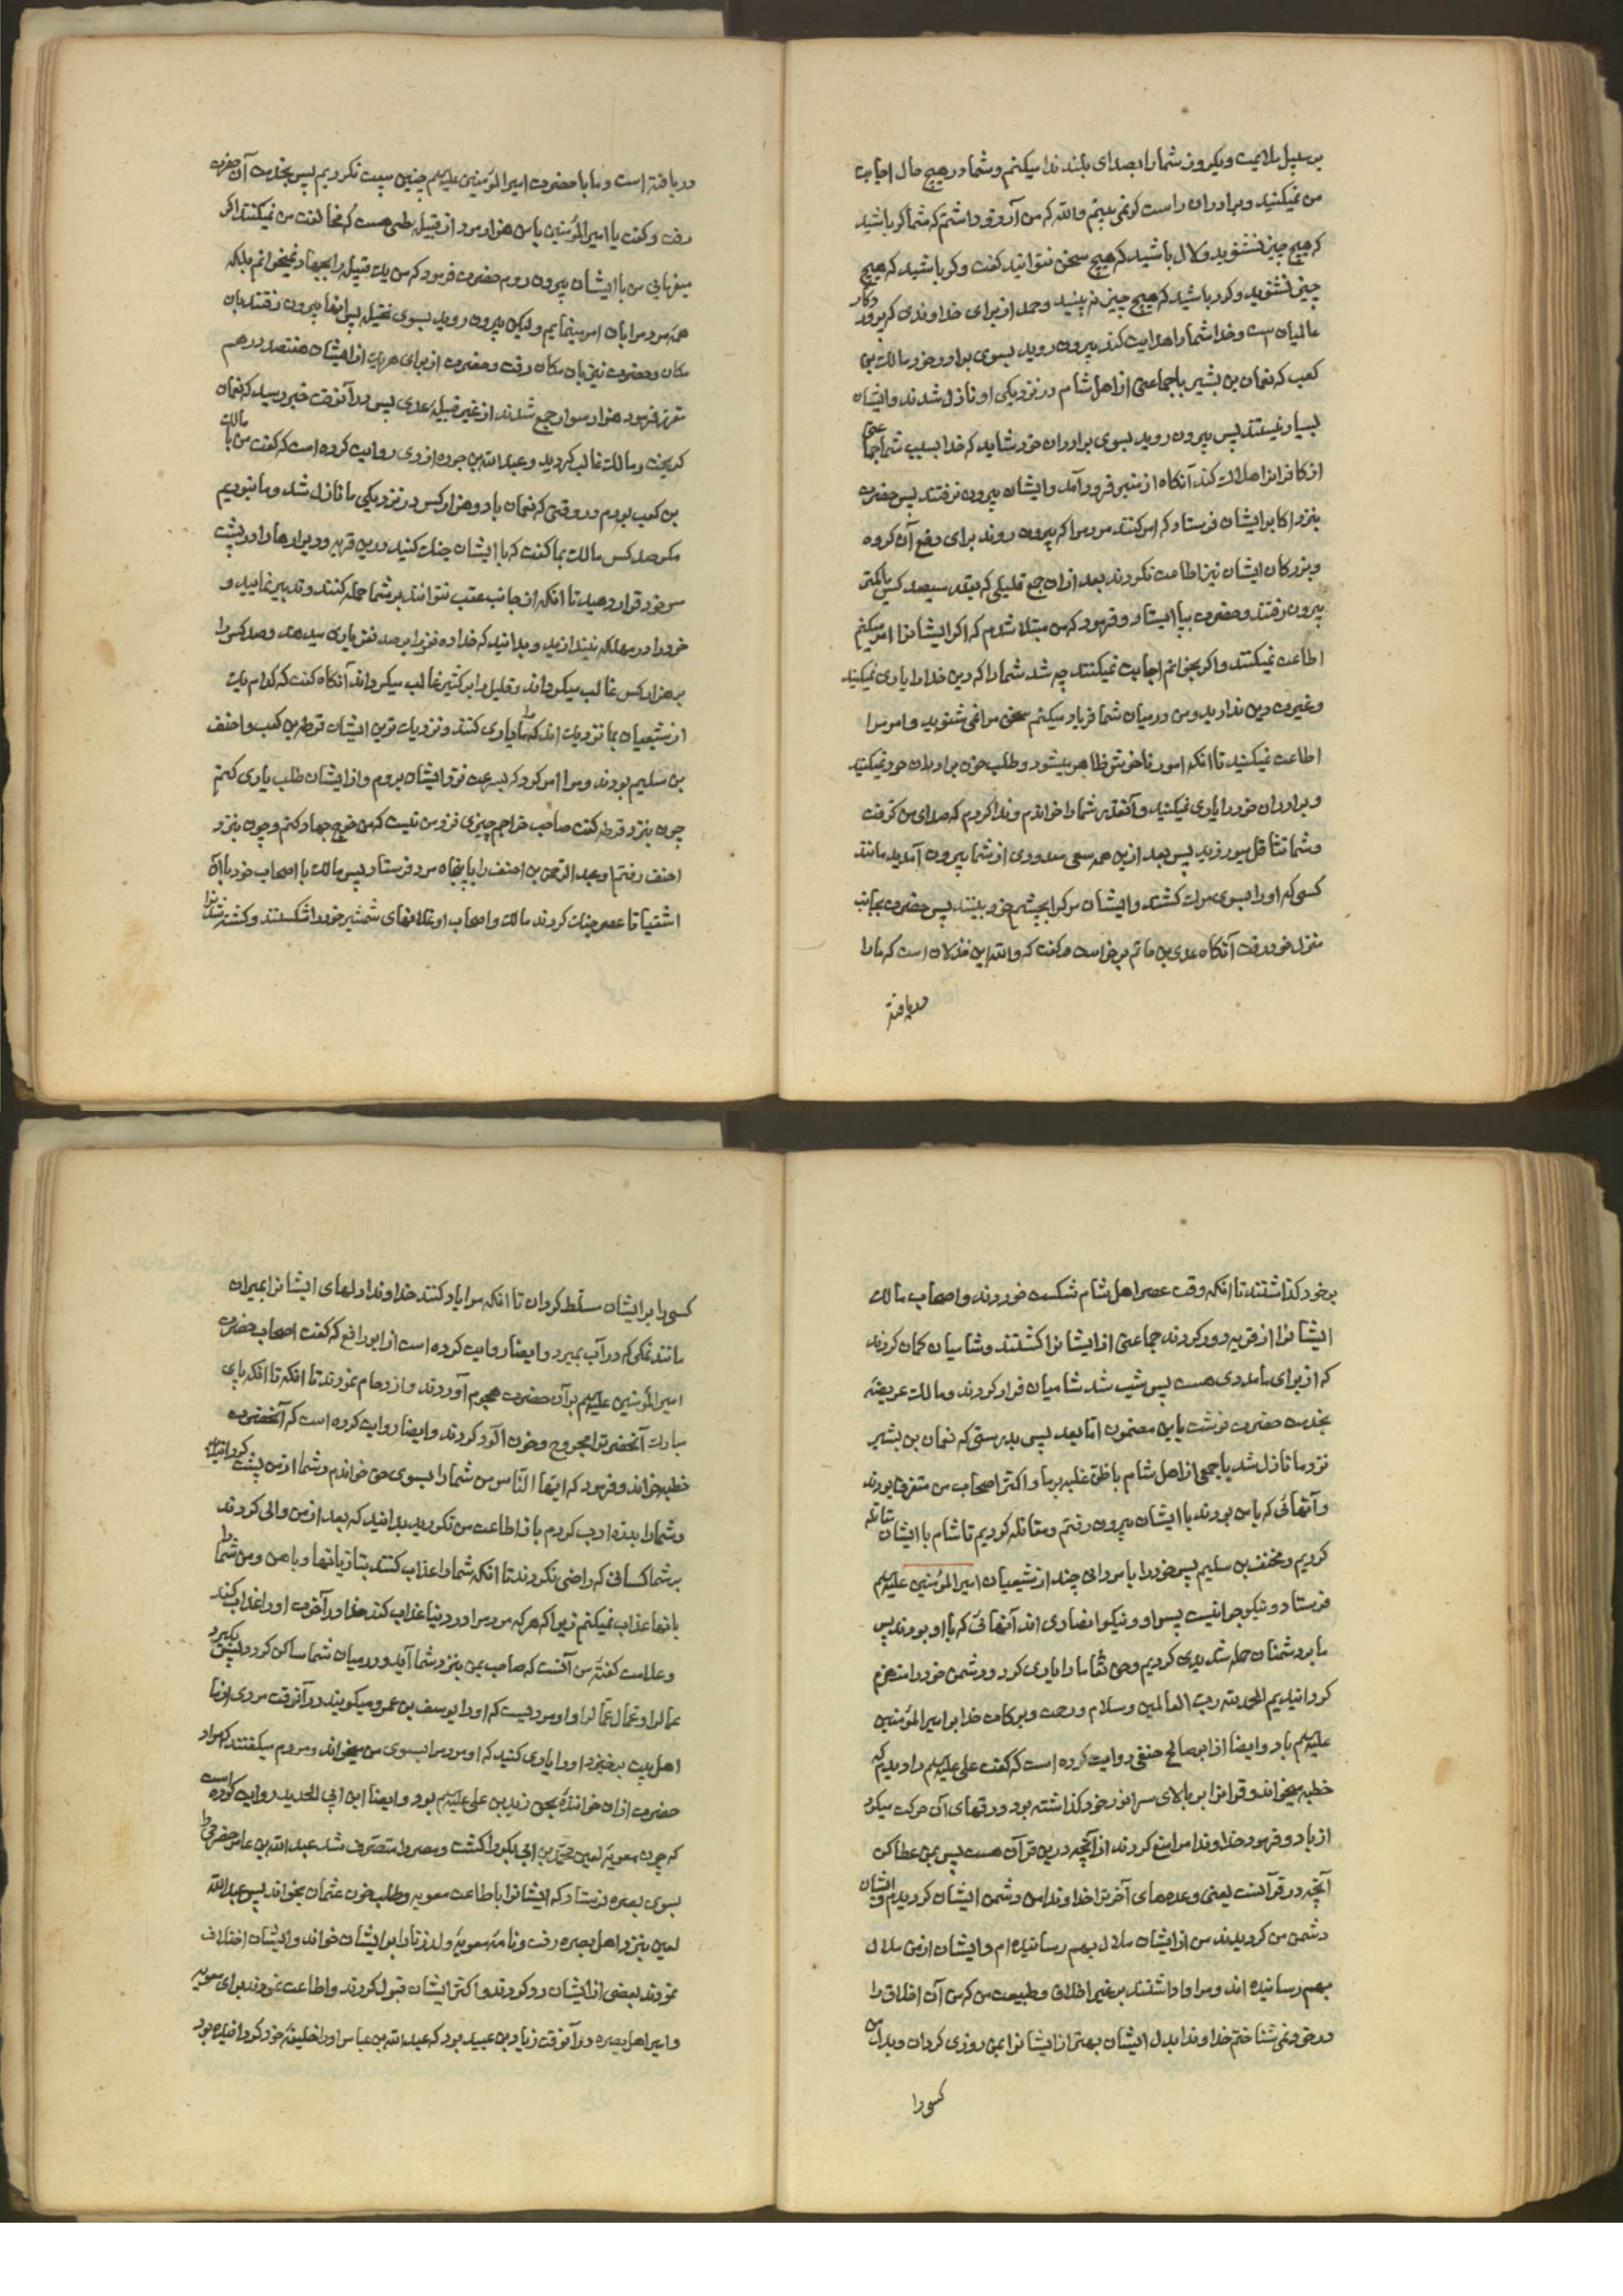 بر سبیل ملایمت ویکروز شما را بصدای بلند ندا میکنم وشما در هیچ حال اجابت
من نمیکنید وبرادران راست کو نمی بینم والله که من آرزو داشتم که شما کر باشید
که هیچ چیز نشنوید ولال باشید که هیچ سخن نتوانید کفت وکر باشید که هیچ
چیزی نشنوید وکور باشید که هیچ چیز نه بینید وحمد از برای خداوندی که پرورد کار
عالمیان ست وخدا شما را هدایت کند بیرون روید بسوی برادر خود مالک بن
کعب که نعمان بن بشیر با جماعتی از اهل شام در نزدیکی او نازل شدند وایشان
بسیار نیستند پس بیرون روید بسوی برادران خود شاید که خدا بسبب شما جماعتی
از کافرانرا هلاک کند آنکاه از منبر فرود آمد وایشان بیرون نرفتند پس حضرت
بنزد اکابر ایشان فرستاد که امر کنند مردم را که بیرون روند برای دفع آن کروه
وبزرکان ایشان نیز اطاعت نکردند بعد ازان جمع قلیلی که بقدر سیصد کس یا کمتر
بیرون رفتند وحضرت بپا ایستاد وفرمود که من مبتلا شدم که اکر ایشانرا امر میکنم
اطاعت نمیکنند واکر بخوانم اجابت نمیکنند چه شد شما را که دین خدا را یاری نمیکنید
وغیرت دین ندارید ومن در میان شما فریاد میکنم سخن مرا نمی شنوید وامر مرا
اطاعت نمیکنید تا انکه امور ناخوش ظاهر میشود وطلب خون برادران خود نمیکنید
وبرادران خود را یاری نمیکنید وآنقدر شما را خواندم وندا کردم که صدای من کرفت
وشما تثاقل میورزید پس بعد ازین همه سعی معدودی از شما بیرون آمدید مانند
کسی که او را بسوی مرک کشند وایشان مرک را بچشم خود بینند پس حضرت بجانب
منزل خود رفت آنکاه عدی بن حاتم برخواست وکفت که والله این خذلان است که ما را
دریافته
دریافته است وما با حضرت امیر المؤمنین علیه السلم چنین بیعت نکردیم پس بخدمت آن حضرت
رفت وکفت یا امیر المؤمنین با من هزار مرد از قبیله طی هست که مخالفت من نمیکنند اکر
میفرمایی من با ایشان بیرون روم حضرت فرمود که من یک قبیله را بجهاد نمیخوانم بلکه
همه مردم را بان امر مینمایم ولیکن بیرون روید بسوی نخیله پس انها بیرون رفتند بان
مکان وحضرت نیز بان مکان رفت وحضرت از برای هر یک از ایشان هفتصد درهم
مقرر فرمود هزار سوار جمع شدند از غیر قبیلهٔ عدی پس در آنوقت خبر رسید که نعمان
کریخت ومالک غالب کردید وعبد الله بن جوده ازدی روایت کرده است که کفت من با مالک
بن کعب بودم در وقتی که نعمان با دو هزار کس در نزدیکی ما نازل شد وما نبودیم
مکر صد کس مالک بما کفت که با ایشان جنک کنید درین قریه ودیوارها را در پشت
سر خود قرار دهید تا انکه از جانب عقب نتوانند بر شما حمله کنند وتدبیر نمایید و
خود را در مهلکه نیندازید وبدانید که خدا ده نفر را بر صد نفر یاری میدهد وصد کس را
بر هزار کس غالب میکرداند وقلیل را بر کثیر غالب میکرداند آنکاه کفت که کدام یک
از شیعیان بما نزدیک اند که ما را یاری کنند ونزدیک ترین ایشان قرظه بن کعب واحنف
بن سلیم بودند ومرا امر کرد که بسرعت نزد ایشان بروم واز ایشان طلب یاری کنم
چون بنزد قرظه کفت صاحب خراجم چیزی نزد من نیست که من خرج جهاد کنم وچون بنزد
احنف رفتم او عبد الرحمن بن احنف را با پنجاه مرد فرستاد پس مالک با اصحاب خود با آن
اشقیا تا عصر جنک کردند مالک واصحاب او غلافهای شمشیر خود را شکستند وکشته شدن را
بر خود کذاشتند تا انکه وقت عصر اهل شام شکست خوردند واصحاب مالک
ایشانرا از قریه دور کردند جماعتی از ایشانرا کشتند وشامیان کمان کردند
که از برای ما مددی هست پس شب شد شامیان فرار کردند ومالک عریضهٔ
بخدمت حضرت نوشت باین مضمون اما بعد پس بدرستی که نعمان بن بشیر
نزد ما نازل شد با جمعی از اهل شام با ظن غلبه بر ما واکثر اصحاب من متفرق بودند
وآنهائی که با من بودند با ایشان بیرون رفتم ومقاتله کردیم تا شام با ایشان مقاتله
کردیم ومخنف بن سلیم پسر خود را با مردانی چند از شیعیان امیر المؤمنین علیه السلم
فرستاد ونیکو جوانیست پسر او ونیکو انصاری اند آنهائی که با او بودند پس
ما بر دشمنان حمله شدیدی کردیم وحق تعالی ما را یاری کرد ودشمن خود را منهزم
کردانیدیم الحمد لله رب العالمین وسلام ورحمت وبرکات خدا بر امیر المؤمنین
علیه السلم باد وایضا از ابو صالح حنفی روایت کرده است که کفت علی علیه السلم را دیدم که
خطبه میخواند وقرانرا بر بالای سر انور خود کذاشته بود ورقهای آن حرکت میکرد
از باد وفرمود خداوندا مرا منع کردند از آنچه درین قرآن هست پس بمن عطا کن
آنچه در قرآنست یعنی وعده های آخرترا خداوندا من دشمن ایشان کردیدم وایشان
دشمن من کردیدند من از ایشان ملال بهم رسانیده ام وایشان از من ملال
بهم رسانیده اند ومرا وا داشتند بر غیر اخلاق وطبیعت من که من آن اخلاق را
در خود نمی شناختم خداوندا بدل ایشان بهتر از ایشانرا بمن روزی کردان وبدل من
کسی را
کسی را بر ایشان مسلّط کردان تا انکه مرا یاد کنند خداوندا دلهای ایشانرا بمیران
مانند نمکی که در آب بمیرد وایضا روایت کرده است از ابو رافع که کفت اصحاب حضرت
امیر المؤمنین علیه السلم بر آن حضرت هجوم آوردند وازدحام نمودند تا انکه تا انکه پای
مبارک آنحضرترا مجروح وخون آلود کردند وایضا روایت کرده است که آنحضرت
خطبه خواند وفرمود که ایها الناس من شما را بسوی حق خواندم وشما از من پشت کردانیدید
وشما را بدره ادب کردم باز اطاعت من نکردید بدانید که بعد از من والی کردند
بر شما کسانی که راضی نکردند تا انکه شما را عذاب کنند بتازیانها وباهن ومن شما را
بانها عذاب نمیکنم زیرا که هر که مردم را در دنیا عذاب کند خدا در آخرت او را عذاب کند
وعلامت کفتهٔ من آنست که صاحب یمن بنزد شما آید ودر میان شما ساکن کردد پس بگیرد
عمال را وعمال عمال را واو مردیست که او را یوسف بن عمرو میکویند در آنوقت مردی از ما
اهل بیت برخیزد او را یاری کنید که او مردم را بسوی من میخواند ومردم میکفتند که مراد
حضرت ازان خوانندهٔ بحق زید بن علی علیه السلم بود وایضا ابن ابی الحدید روایت کرده است
که چون معویهٔ لعین محمد بن ابی بکر را کشت ومصر را متصرف شد عبد الله بن عامر حضرمی را
بسوی بصره فرستاد که ایشانرا باطاعت معویه وطلب خون عثمان بخواند پس عبد الله
لعین بنزد اهل بصره رفت ونامهٔ معویهٔ ولد زنا را بر ایشان خواند وایشان اختلاف
نمودند بعضی از ایشان رد کردند واکثر ایشان قبول کردند واطاعت نمودند برای معویه
وامیر اهل بصره در آنوقت زیاد بن عبید بود که عبد الله بن عباس او را خلیفهٔ خود کردانیده بود